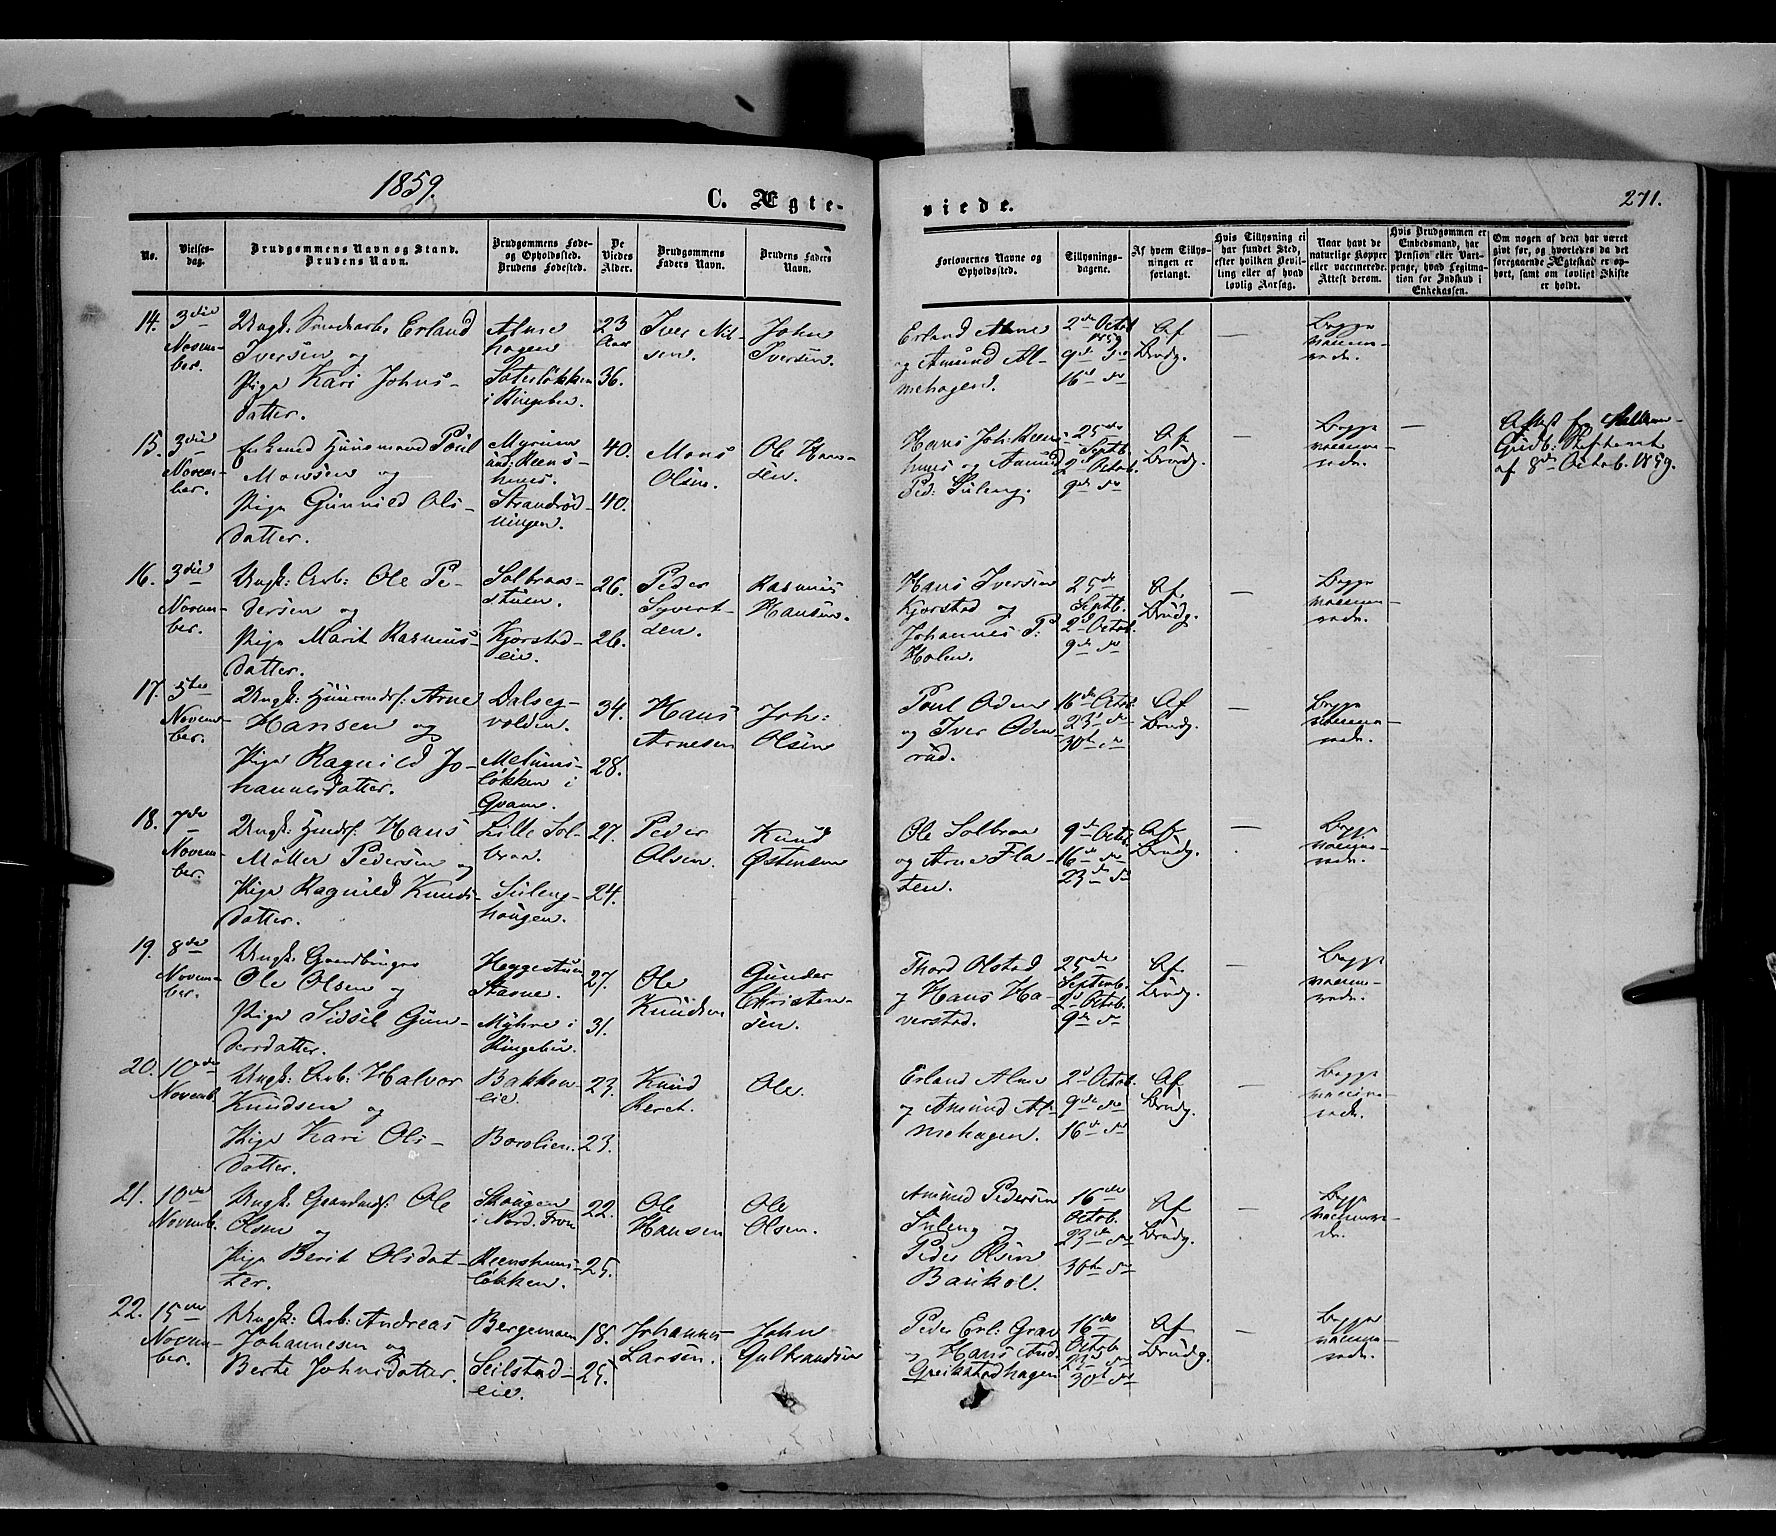 1859.
C. Ægte-
viede.
271.
No.
Vielses-
dag.
Brudgommens Navn og Stand.
Brudens Navn.
Brudgommens Føde-
og Opholdssted.
Brudens Fødested.
De
Viedes
Alder.
Brudgommens
Faders Navn.
Brudens Faders
Navn.
Forlovernes Navne og
Opholdssted.
Tillysnings-
dagene.
Af hvem Tillys-
ningen er
forlangt.
Hvis Tillysning ei
har fundet Sted,
efter hvilken Bevil-
ling eller af hvad
lovlig Aarsag.
Naar havt de
naturlige Kopper
eller vaccinerede.
Attest derom.
Hvis Brudgommen er
Embedsmand, har
Pension eller Vart-
penge, hvad Legitima-
tion for Indskud i
Enkekassen.
Om nogen af dem har været
givt før, og hvorledes da det
foregaaende Ægteskab er op-
hørt, samt om lovligt Skifte
er holdt.
14. 3die
Novem-
ber.
Ungk. Erland
Iversen og
Pige Kari Johns-
datter.
Alme
hagen
i Ringebu.
23
Aar
36.
Iver Nil-
sen.
John
Iversen.
Erland Alme
og Amund Al-
mehagen.
2den Octob.
1859
9de do
16de do
Af
Brudg.
—
Begge
vaccine-
rede.
15. 3die
Novem-
ber.
Enkemd Huusmand Poul
Monsen og
Pige Gunnild Ols-
datter.
Strandrød-
ningen.
40.
40.
Mons
Olsen.
Ole Han-
sen.
Hans Joh: Reens-
huus og Amund
Ped: Sileng.
25de
Septb.
2d Octob.
9de do
Af
Brudg.
—
Begge
vaccine-
rede.
—
Attest fra
Gudb.
af 8de Octob. 1859.
16. 3die
Novem-
ber.
Ungk: Arb: Ole Pe-
dersen og
Pige Marit Rasmus-
datter.
Solbraa-
stuen.
Kjorstad-
eie.
26.
26.
Peder
Syvert-
sen.
Rasmus
Hansen.
Hans Iversen
Kjorstad og
Johannes P:
Holen.
25de
Septb.
2d Octob.
9de do
Af
Brudg.
—
Begge
vaccine-
rede.
17. 5te
Novem-
ber.
Ungk: Arne
Hansen og
Pige Ragnild Jo-
hannesdatter.
Dalseg-
volden.
Melums-
løkken i
Qvam.
34.
28.
Hans
Arnesen
Joh:
Olsen
Poul Oden
og Iver Oden-
rud.
16de Octob.
23d do
30te do
Af
Brudg.
—
Begge
vaccine-
rede.
18. 7de
Novem-
ber.
Ungk: Hans
Møller Pedersen og
Pige Ragnild Knuds-
datter.
Lille Sol-
braa.
Sileng-
haugen.
27.
24.
Peder
Olsen.
Knud
Østensen
Ole Solbraa
og Arne Fla-
ten.
9de Octob.
16de do
23de do
Af
Brudg.
—
Begge
vaccine-
rede.
19. 8de
Novem-
ber.
Ungk: Gaardbruger
Ole Olsen og
Pige Sidsel Gun-
dersdatter.
Heggestuen
Stavne.
Myhre i
Ringebu.
27.
31.
Ole
Knudsen
Gunder
Christen-
sen.
Thord Olstad
og Hans Ha-
verstad.
25de
Septemb.
2d Octob.
9de do
Af
Brudg.
—
Begge
vaccine-
rede.
20. 10de
Novemb.
Ungk: Arb: Halvor
Knudsen og
Pige Kari Ols-
datter.
Bakken-
eie.
Borolien.
23.
23.
Knud
Ole.
Erland Alme
og Amund Al-
mehagen.
2d Octob.
9de do
16de do
Af
Brudg.
—
Begge
vaccine-
rede.
21. 10de
Novemb.
Ungk: Ole
Olsen og
Pige Berit Olsdat-
ter.
Skougen
i Nord. Fron
Reenshuus-
løkken.
22.
25.
Ole
Hansen
Ole
Olsen.
Amund Pedersen
Sileng og
Peder Olsen
Baukol.
16de
Octob.
23de do
30te do
Af
Brudg.
—
Begge
vaccinere-
de.
22. 15de
Novem-
ber.
Ungk: Arb: Andreas
Johannesen og
Berte Johnsdatter.
Bergemoen
Seilstad-
eie.
18.
25.
Johannes
Larsen.
John
Gulbrandsen
Peder Erl: Grav
og Hans And.
Greilstadhagen
16de
Octob.
23d do
30te do
Af
Brudg.
—
Begge
vaccine-
rede.